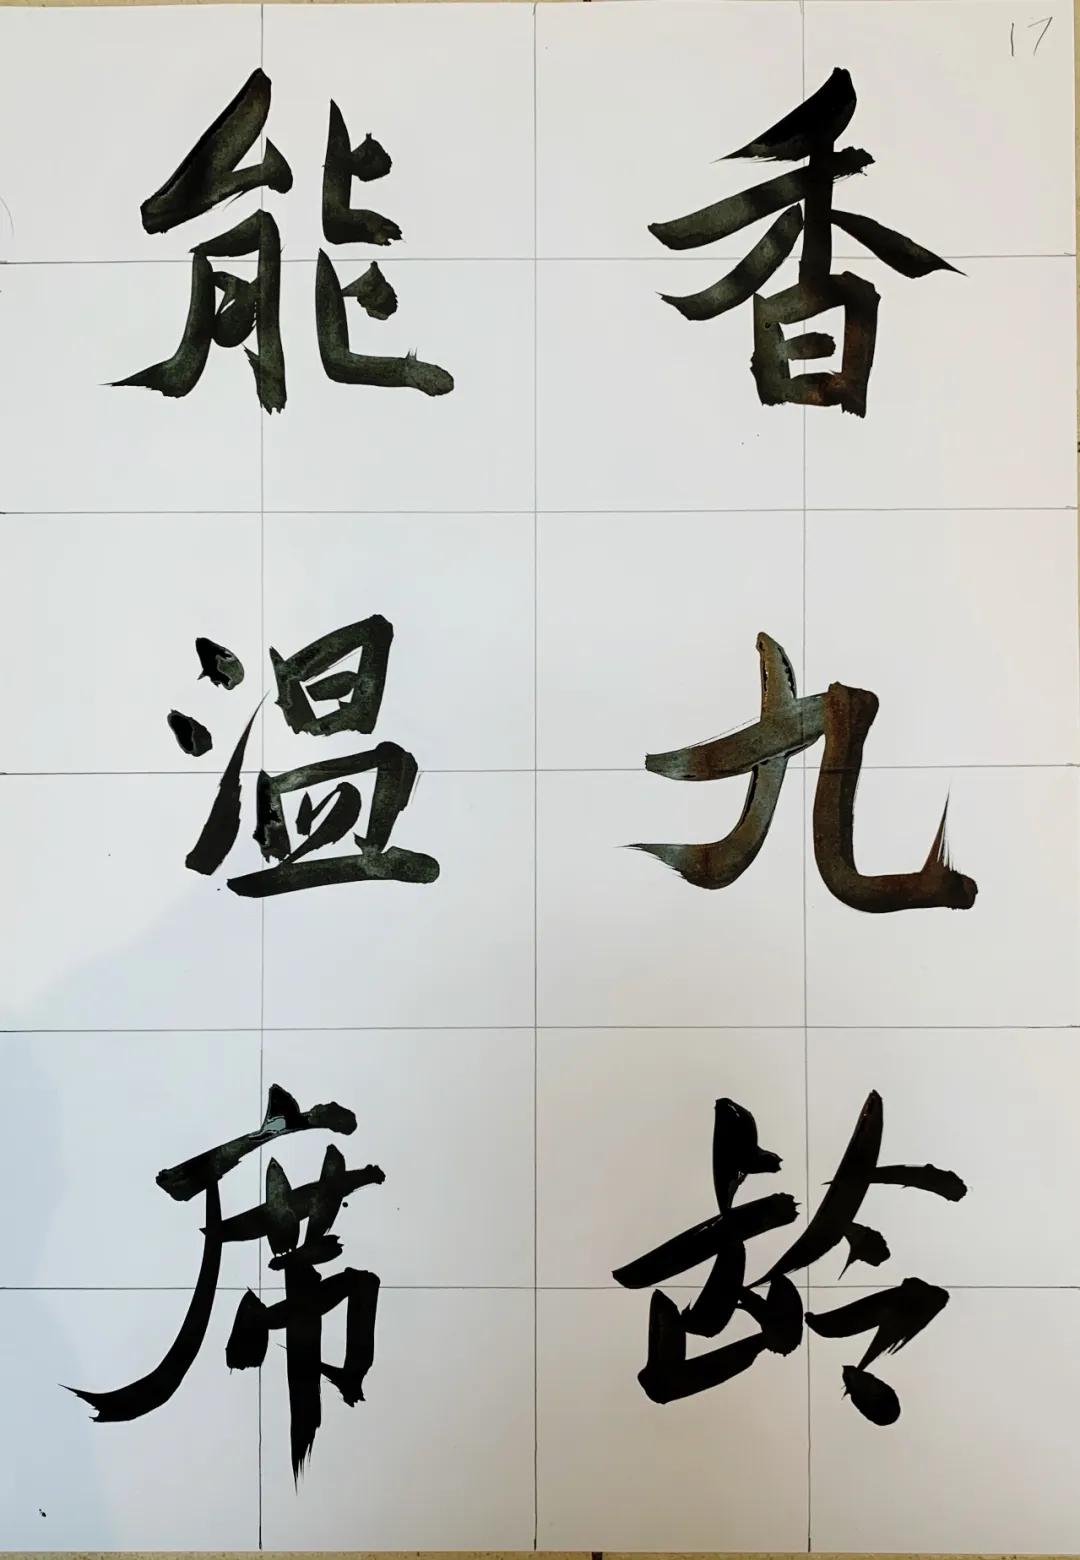 17
香九龄
能温席